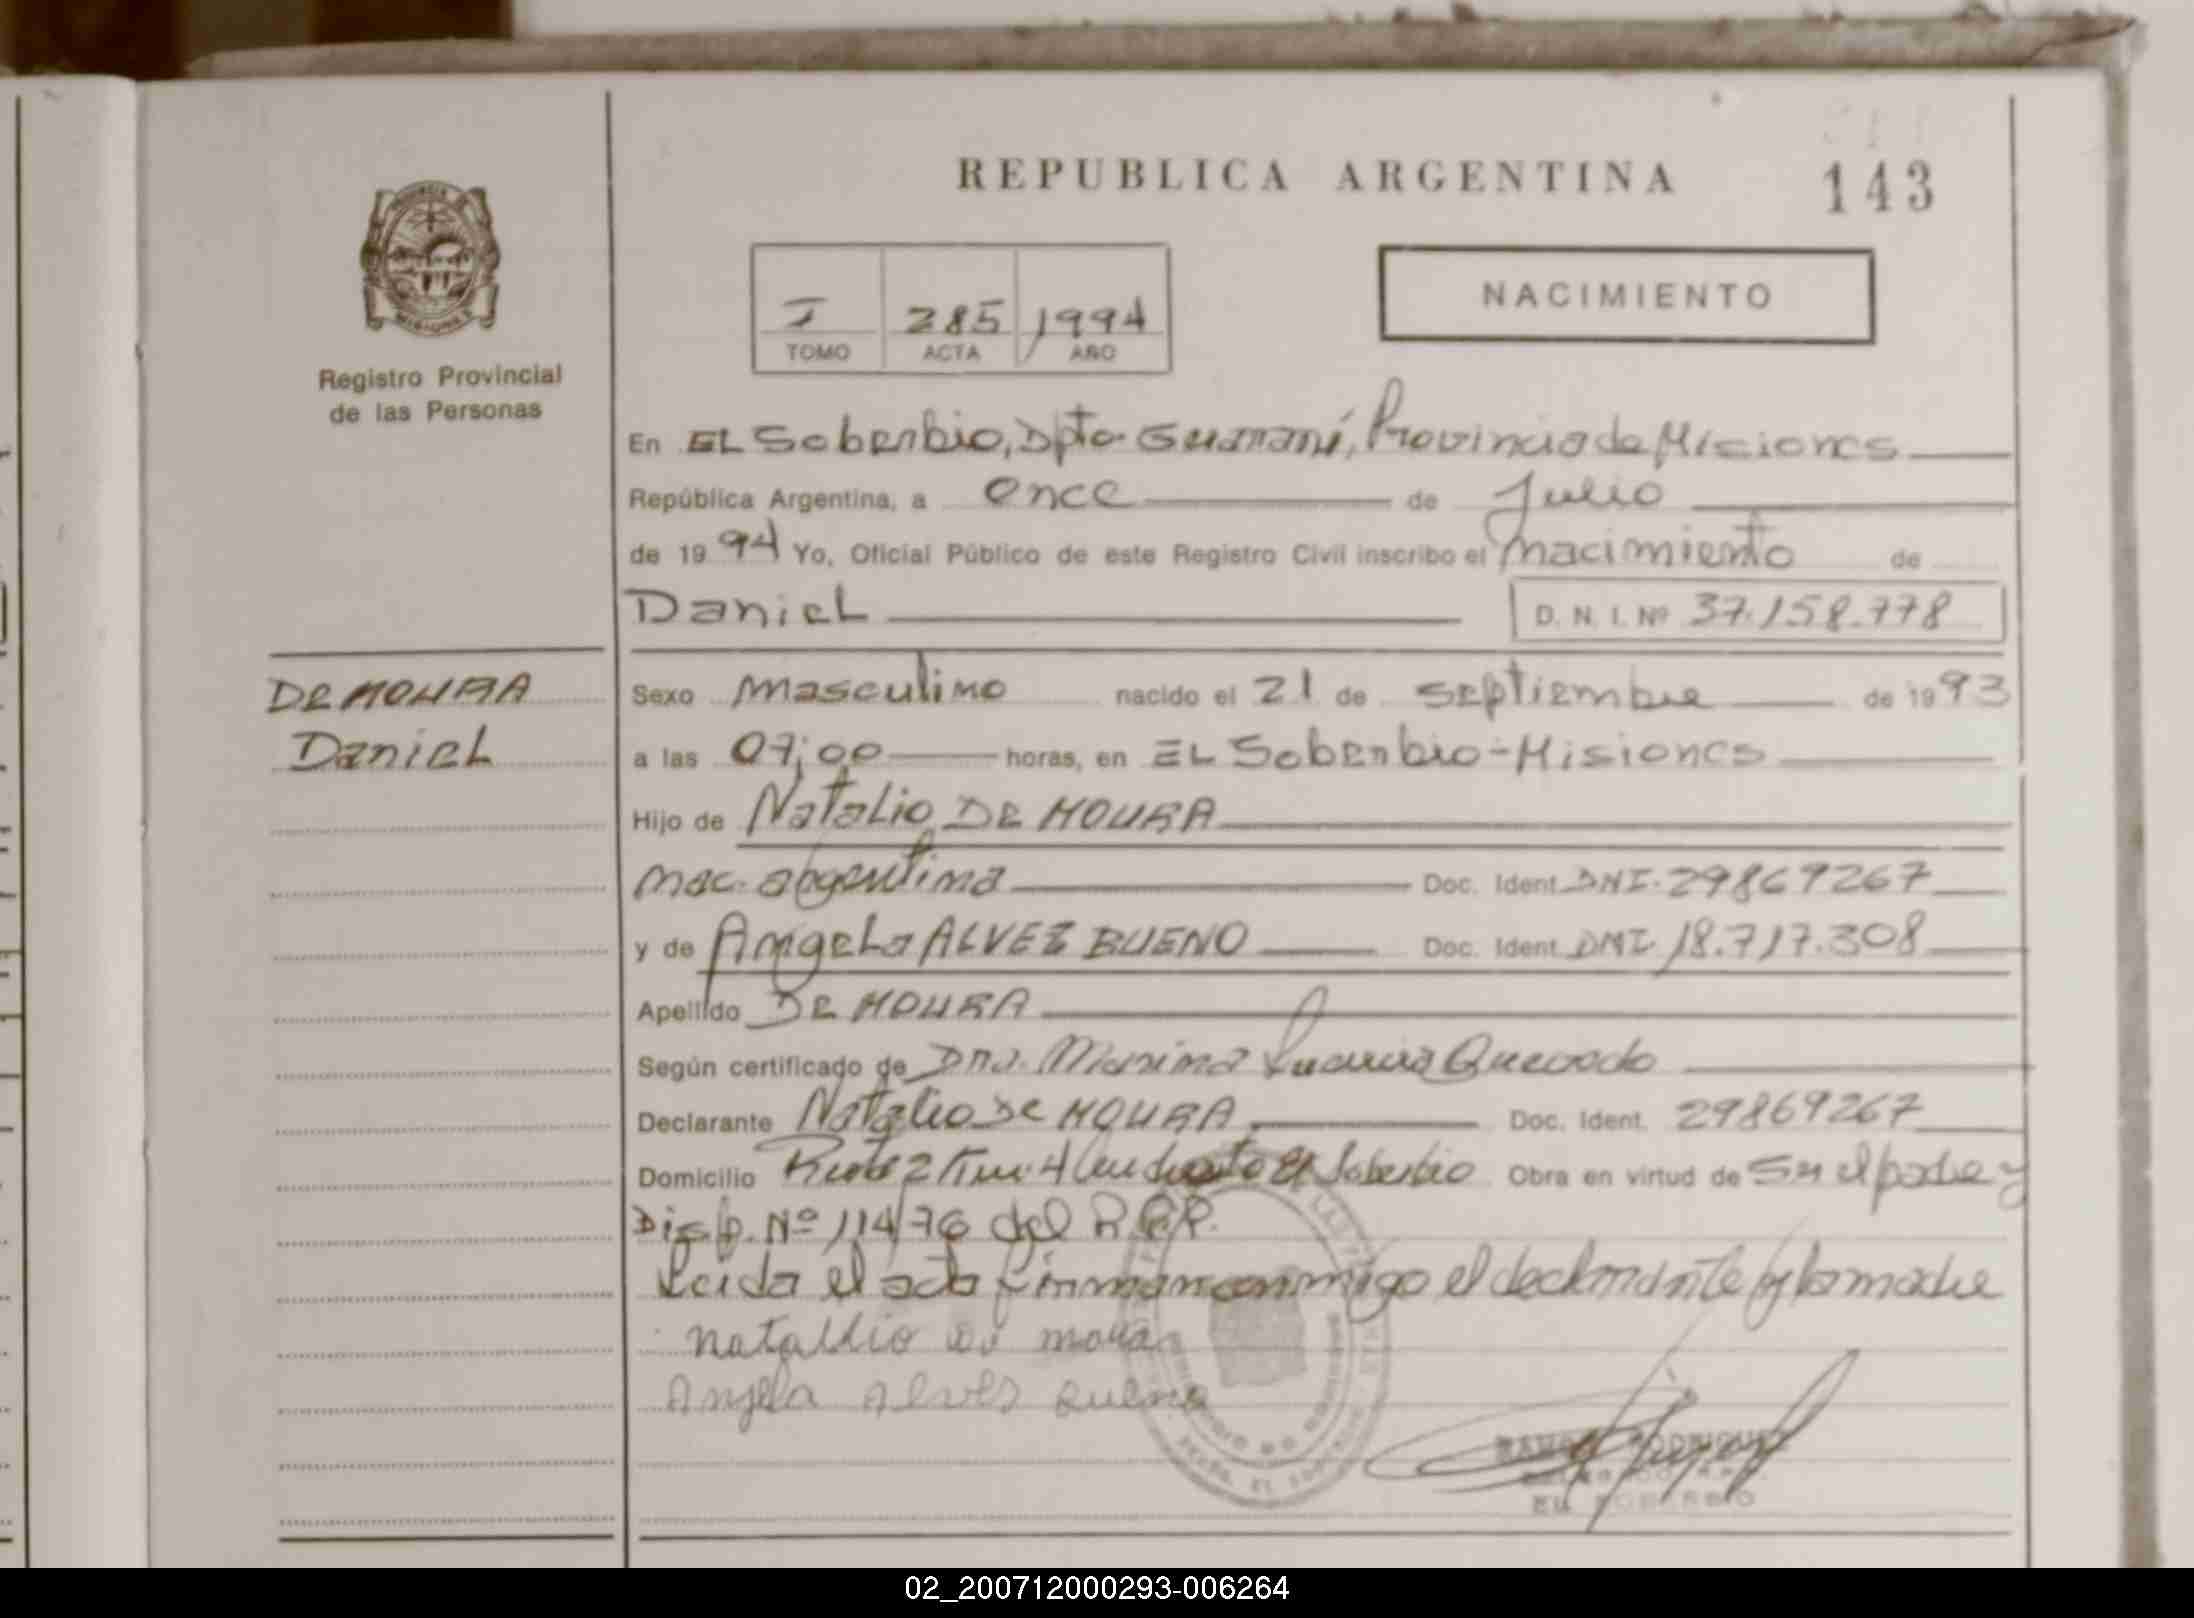 REPUBLICA ARGENTINA
143
NACIMIENTO
I 285 1994
TOMO ACTA AÑO
MISIONES
Registro Provincial
de las Personas
En EL Soberbio, Dpto Guaraní, Provincia de Misiones
República Argentina, a once de Julio
de 1994 Yo, Oficial Público de este Registro Civil inscribo el nacimiento de
Daniel D. N. I. Nº 37.158.778
DE MOURA
Daniel
Sexo masculino nacido el 21 de septiembre de 1993
a las 07;00 horas, en EL Soberbio-Misiones
Hijo de Natalio DE MOURA
nac. argentina Doc. Ident. DNI. 29869267
y de Angela ALVEZ BUENO Doc. Ident. DNI 18.717.308
Apellido DE MOURA
Según certificado de Dra. Quevedo
Declarante Natalio De MOURA Doc. Ident. 29869267
Domicilio Ruta 2 Km. 4 El Soberbio Obra en virtud de Ser el padre y
Disp. Nº 114/76 del R.P.P.
Leida el acta firman conmigo el declarante y la madre
natallio de moura
Angela Alves Buena
RAMON RODRIGUEZ
EL SOBERBIO
02_200712000293-006264